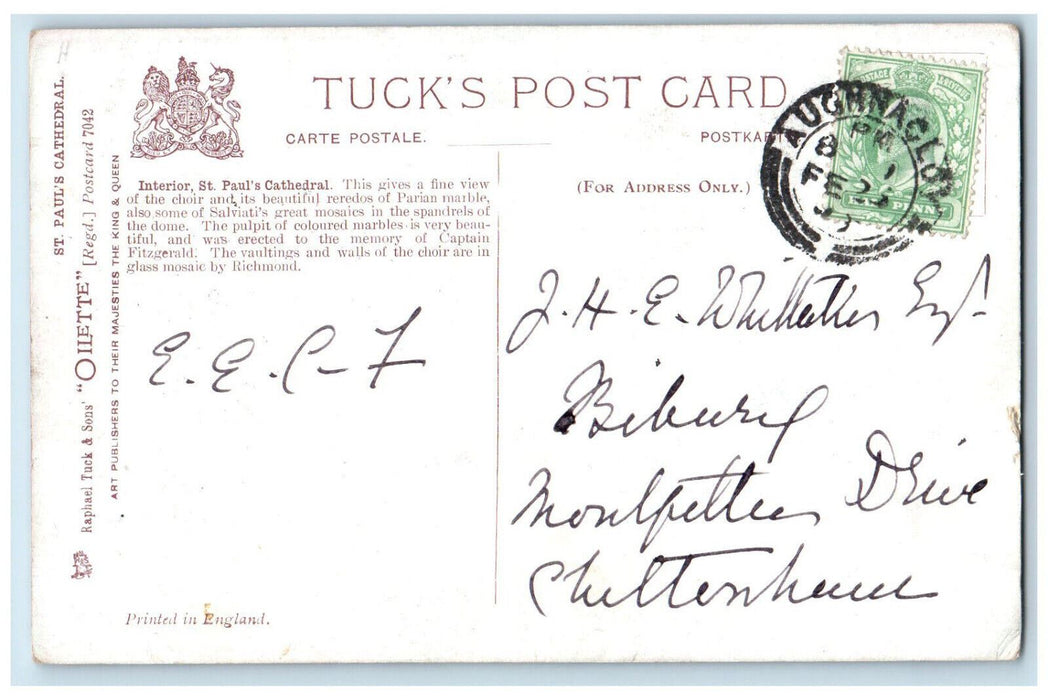 ST. PAUL'S CATHEDRAL.
Raphael Tuck & Sons' "OILETTE" [Regd.] Postcard 7042
ART PUBLISHERS TO THEIR MAJESTIES THE KING & QUEEN
TUCK'S POST CARD
CARTE POSTALE.
POSTKARTE
(FOR ADDRESS ONLY.)
Interior, St. Paul's Cathedral. This gives a fine view
of the choir and its beautiful reredos of Parian marble,
also some of Salviati's great mosaics in the spandrels of
the dome. The pulpit of coloured marbles is very beau-
tiful, and was erected to the memory of Captain
Fitzgerald. The vaultings and walls of the choir are in
glass mosaic by Richmond.
E. E. C - F
Printed in England.
POSTAGE & REVENUE
HALF PENNY
AUGHNACLOY
8 PM
FE 23
J. H. E. Whittaker Esq.
Bibury
Montpellier Drive
Cheltenham